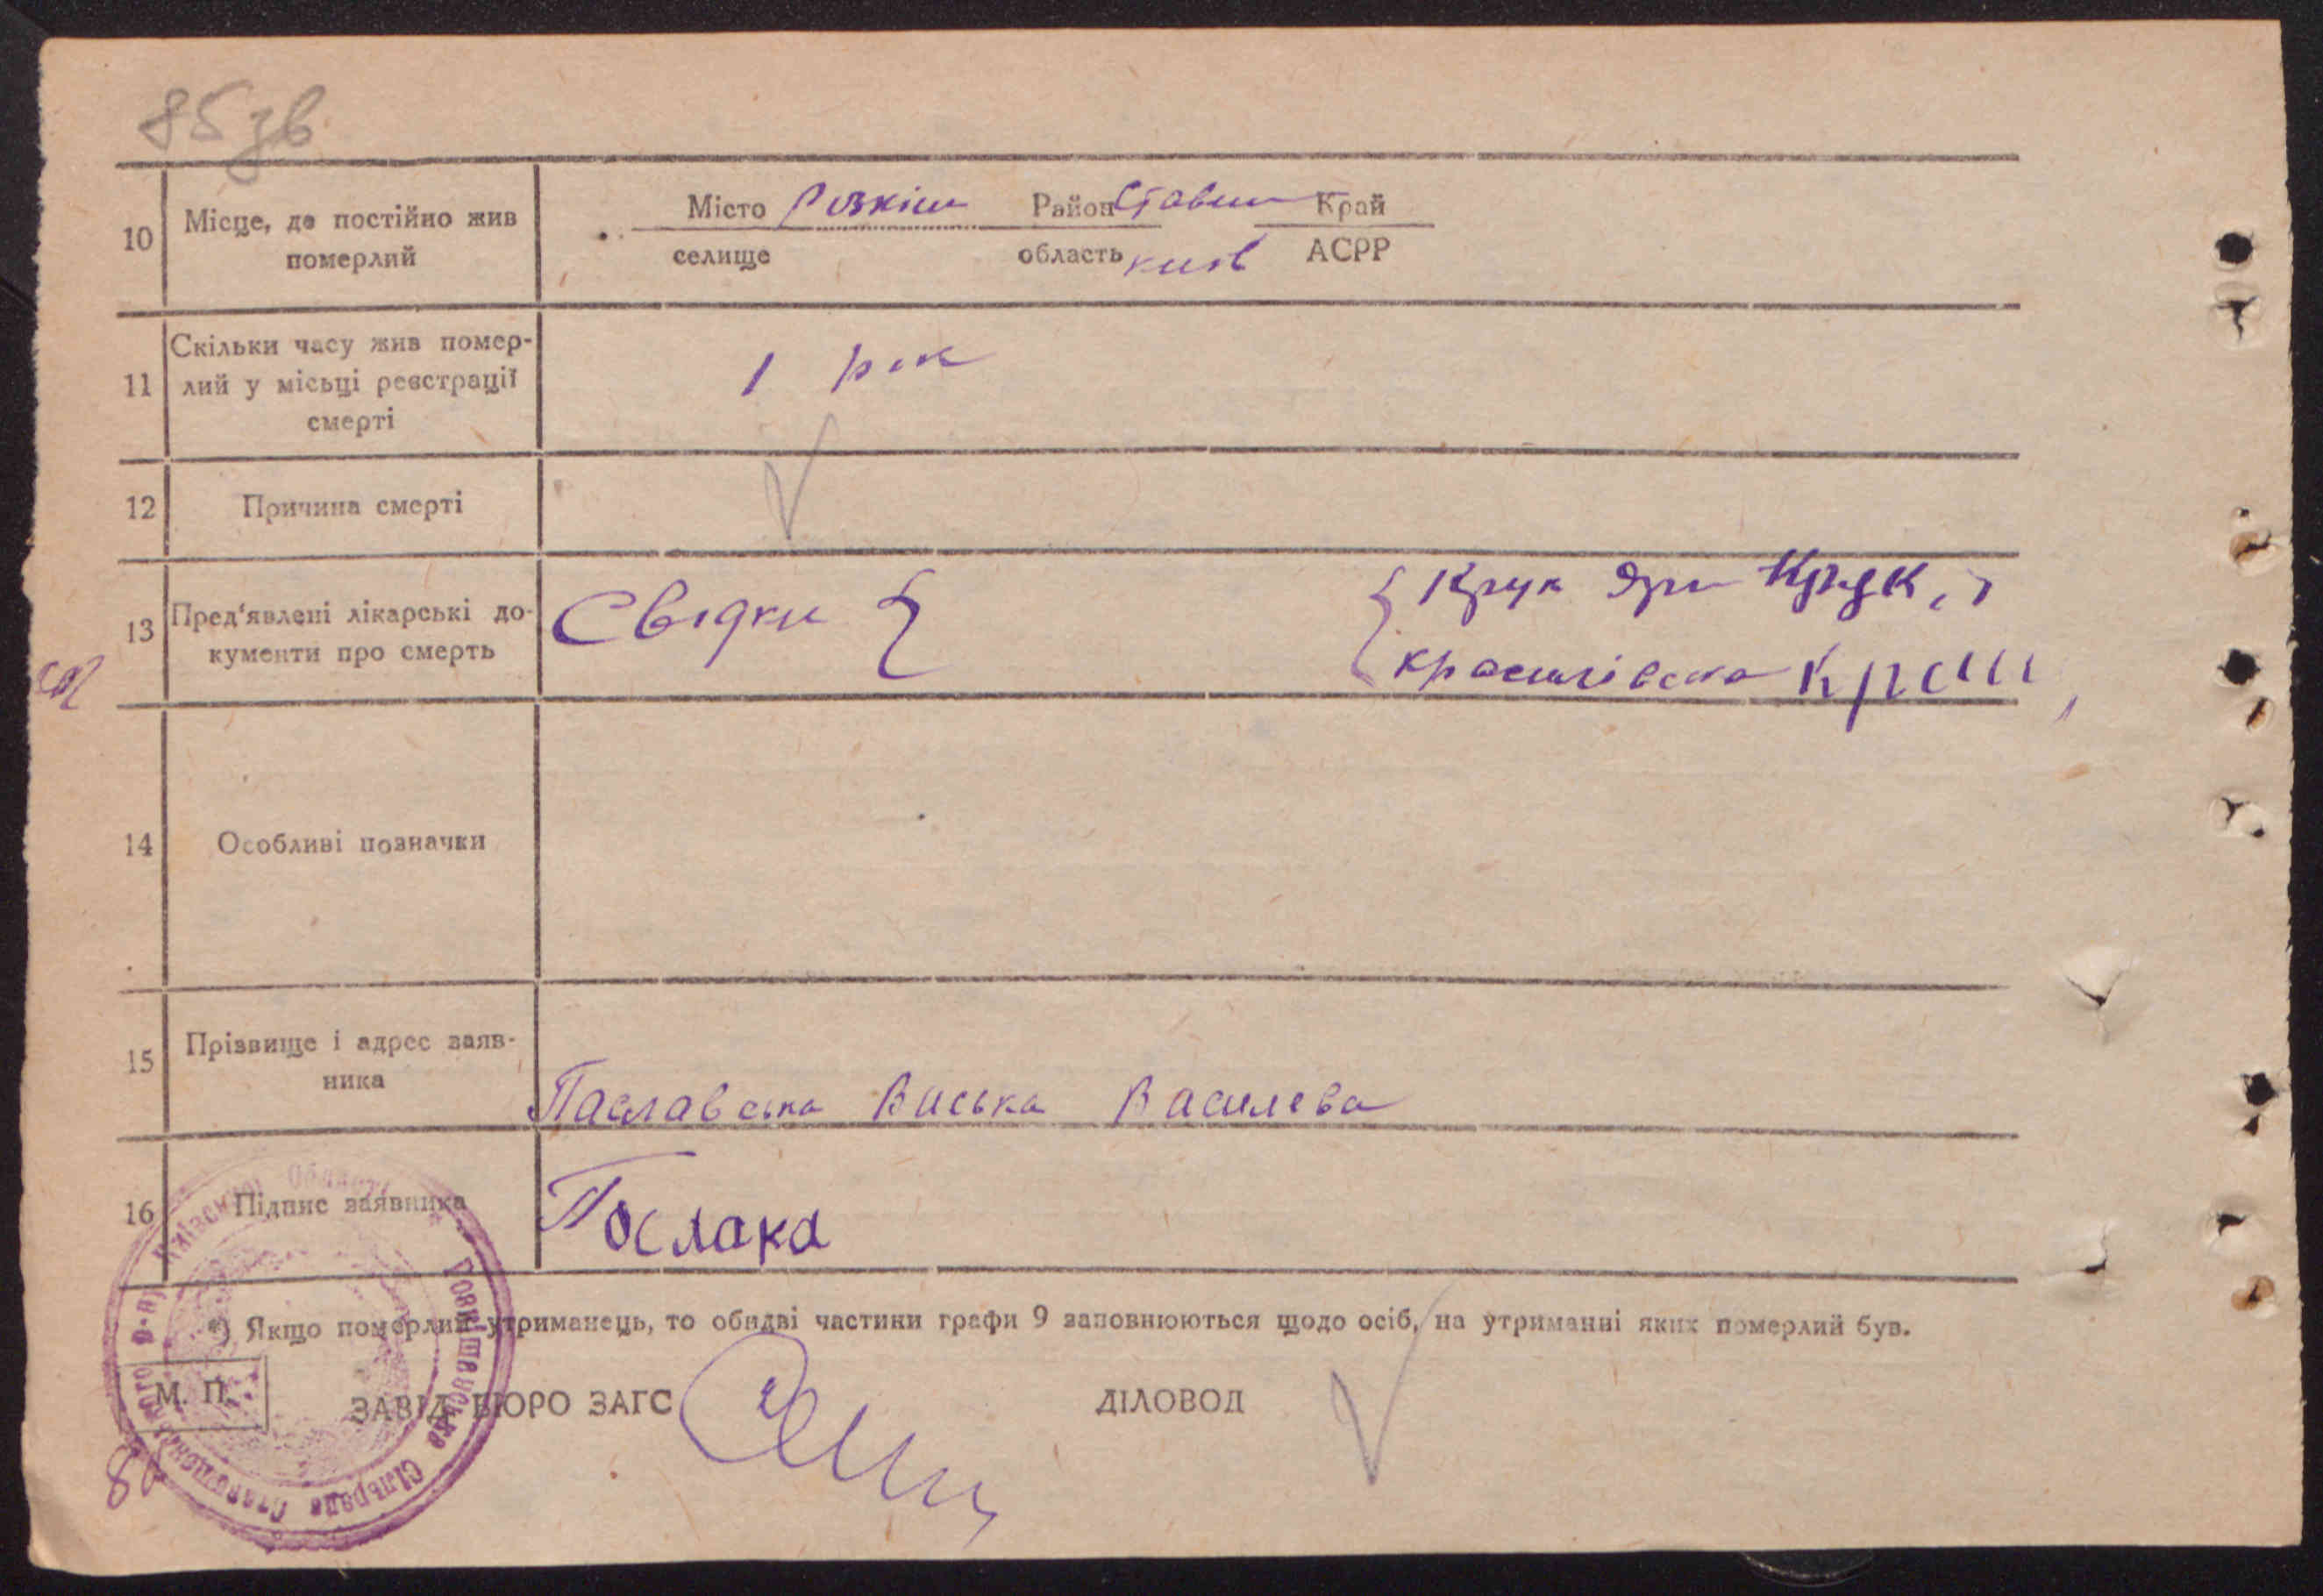 85 зв
10 Місце, де постійно жив померлий
Місто Розкіш Район Ставищ Край
селище область киів АСРР
11 Скільки часу жив помер-
лий у місьці реєстрації
смерті
1 рік
12 Причина смерті
13 Пред'явлені лікарські до-
кументи про смерть
Свідки { { Крук Яри Крук
красилівська Краси
14 Особливі позначки
15 Прізвище і адрес заяв-
ника
Паславська Васька Василева
16 Підпис заявника
Послака
*) Якщо померлий утриманець, то обидві частини графи 9 заповнюються щодо осіб, на утриманні яких померлий був.
М. П.
ЗАВІД БЮРО ЗАГС ДІЛОВОД
Сільрада Київської Області